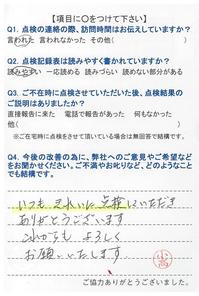 【項目に〇をつけて下さい】
Q1. 点検の連絡の際、訪問時間はお伝えしていますか?
言われた 言われなかった その他( )
Q2. 点検記録表は読みやすく書かれていますか?
読みやすい 一応読める 読みづらい 読めない部分がある
Q3. ご不在時に点検させていただいた後、点検結果の
ご説明はありましたか?
直接報告に来た 電話で報告があった 何もなかった
他( )
※ご在宅時に点検をさせて頂いている場合は無回答で結構です。
Q4. 今後の改善の為に、弊社へのご意見やご希望など
をお聞かせください。ご不満やお叱りなど、どのようなこと
でも結構です。
いつも きれいに 点検していただき
ありがとうございます
これからも よろしく
お願いいたします
ご協力ありがとうございました。